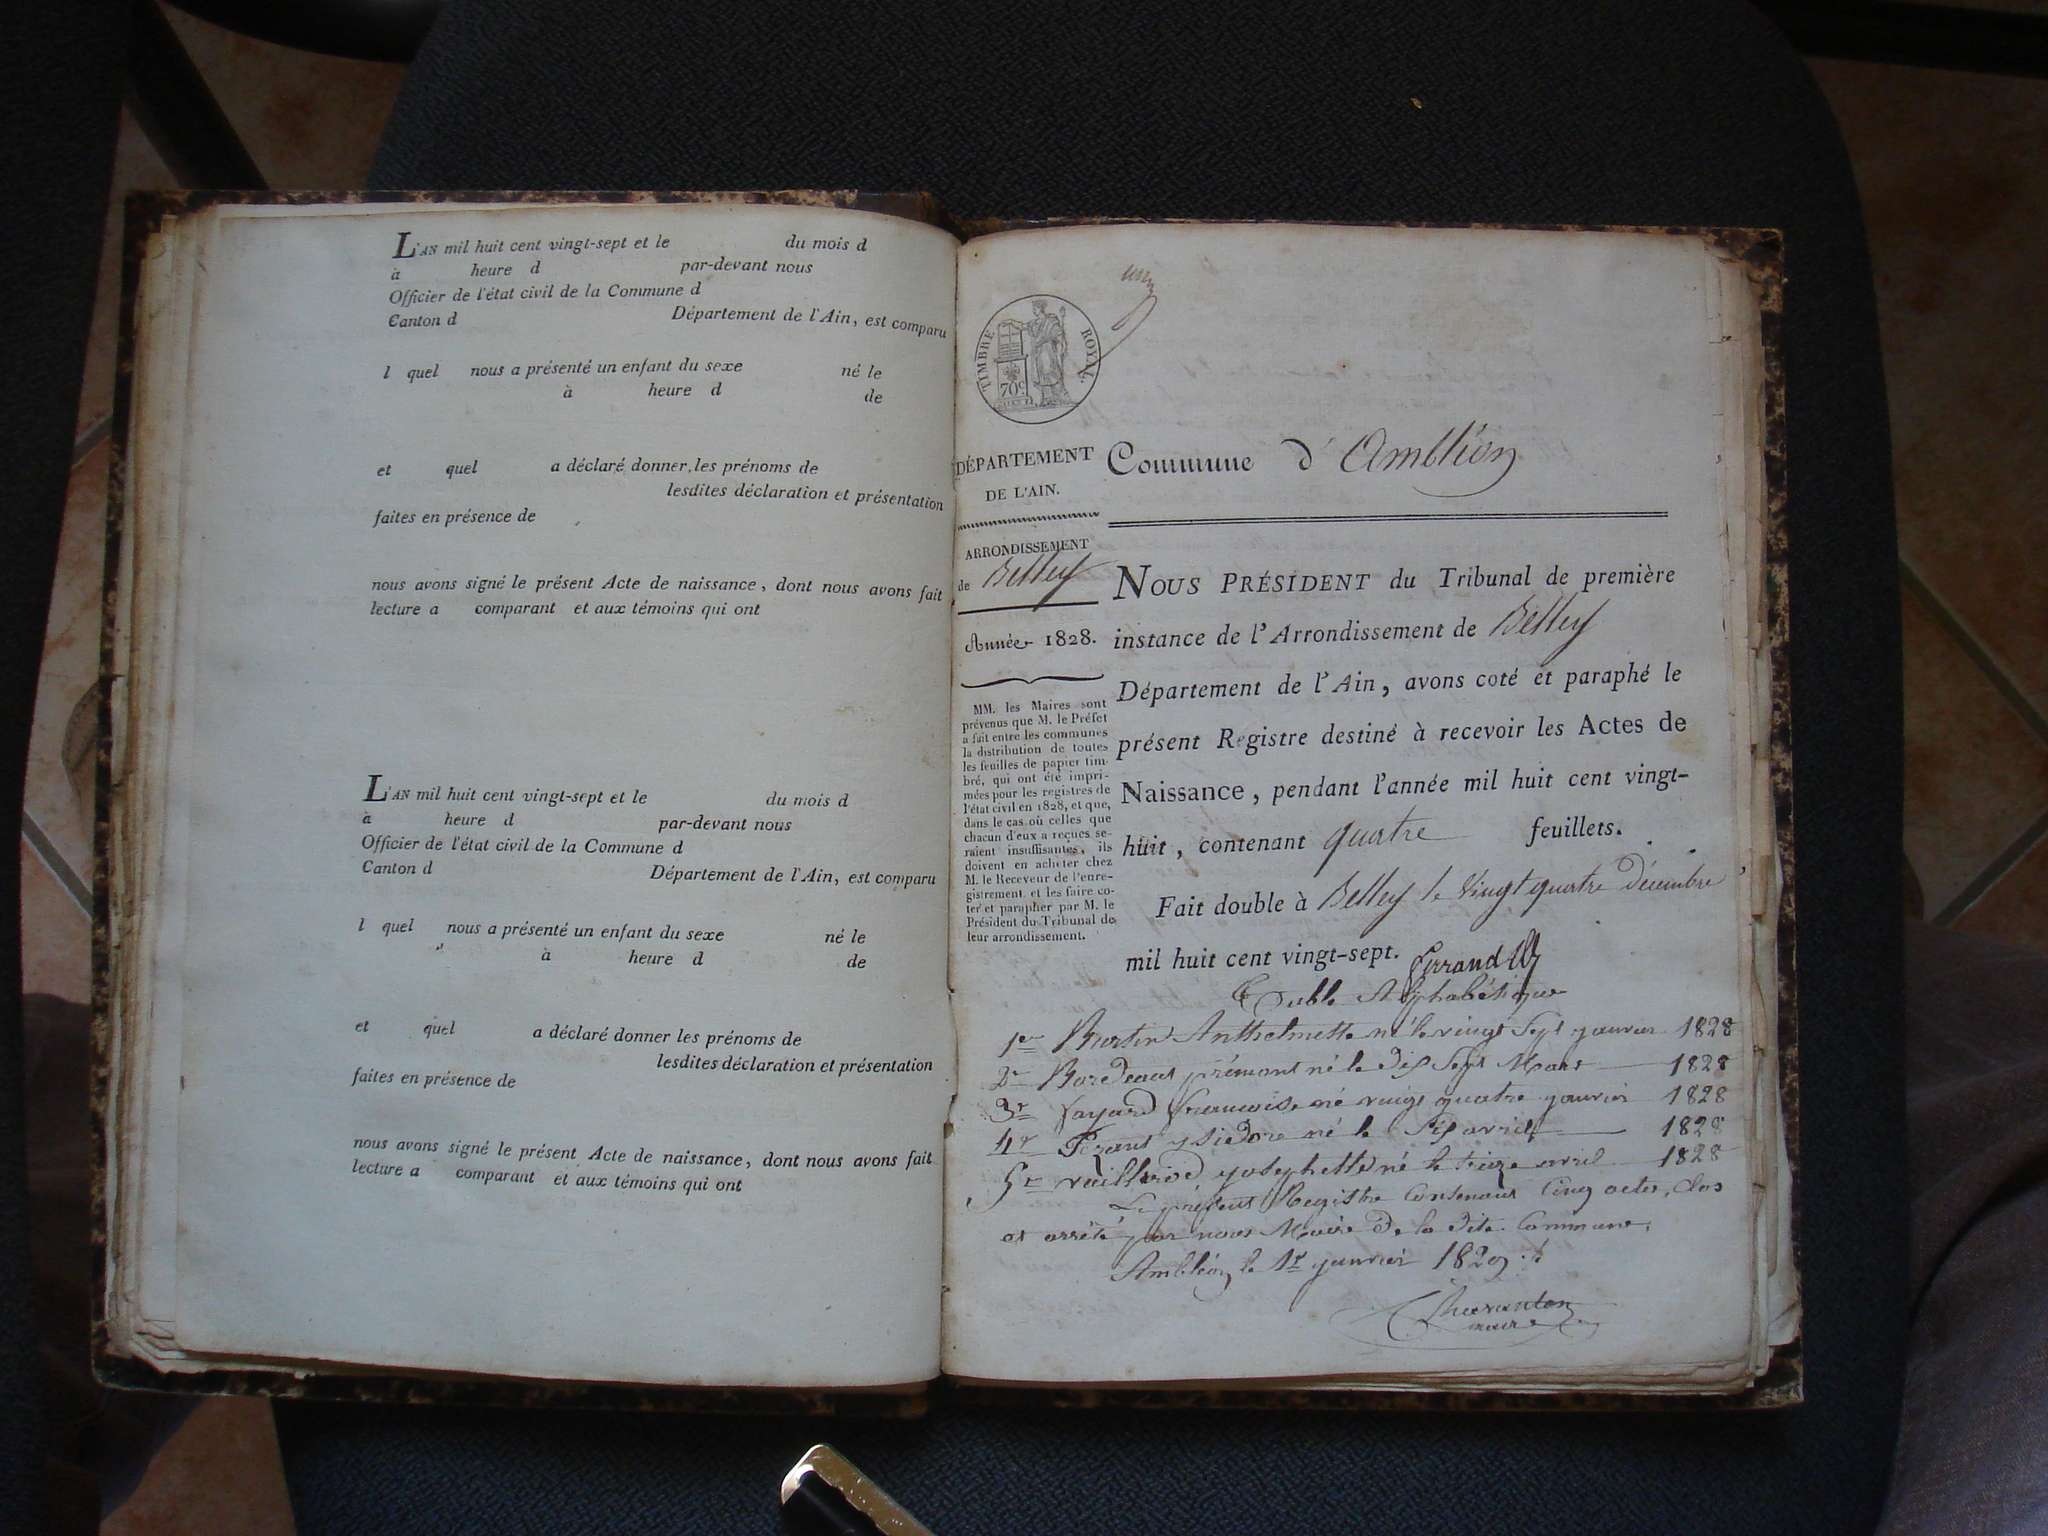 L'AN mil huit cent vingt-sept et le du mois d
à heure d par-devant nous
Officier de l'état civil de la Commune d
Canton d Département de l'Ain, est comparu
l quel nous a présenté un enfant du sexe né le
à heure d de
et quel a déclaré donner les prénoms de
lesdites déclaration et présentation
faites en présence de
nous avons signé le présent Acte de naissance, dont nous avons fait
lecture a comparant et aux témoins qui ont
L'AN mil huit cent vingt-sept et le du mois d
à heure d par-devant nous
Officier de l'état civil de la Commune d
Canton d Département de l'Ain, est comparu
l quel nous a présenté un enfant du sexe né le
à heure d de
et quel a déclaré donner les prénoms de
lesdites déclaration et présentation
faites en présence de
nous avons signé le présent Acte de naissance, dont nous avons fait
lecture a comparant et aux témoins qui ont
TIMBRE ROYAL
70c
DÉPARTEMENT
DE L'AIN.
ARRONDISSEMENT
de Belley
Année 1828.
MM. les Maires sont
prévenus que M. le Préfet
a fait entre les communes
la distribution de toutes
les feuilles de papier tim-
bré, qui ont été impri-
mées pour les registres de
l'état civil en 1828, et que,
dans le cas où celles que
chacun d'eux a reçues se-
raient insuffisantes, ils
doivent en acheter chez
M. le Receveur de l'enre-
gistrement et les faire co-
ter et parapher par M. le
Président du Tribunal de
leur arrondissement.
Commune d'Ambléon
NOUS PRÉSIDENT du Tribunal de première
instance de l'Arrondissement de Belley
Département de l'Ain, avons coté et paraphé le
présent Registre destiné à recevoir les Actes de
Naissance, pendant l'année mil huit cent vingt-
huit, contenant quatre feuillets.
Fait double à Belley le Vingt quatre décembre
mil huit cent vingt-sept.
Table Alphabétique
1er Burtin Anthelmette né le vingt Sept janvier 1828
2e né le Dix Sept Mars 1828
3e fayard francoise né vingt quatre janvier 1828
4e né le Six avril 1828
5e Josephette né le treize avril 1828
Le présent Registre Contenant Cinq actes, clos
et arrêté par nous Maire De la dite Commune,
Ambléon le 1er janvier 1829
maire